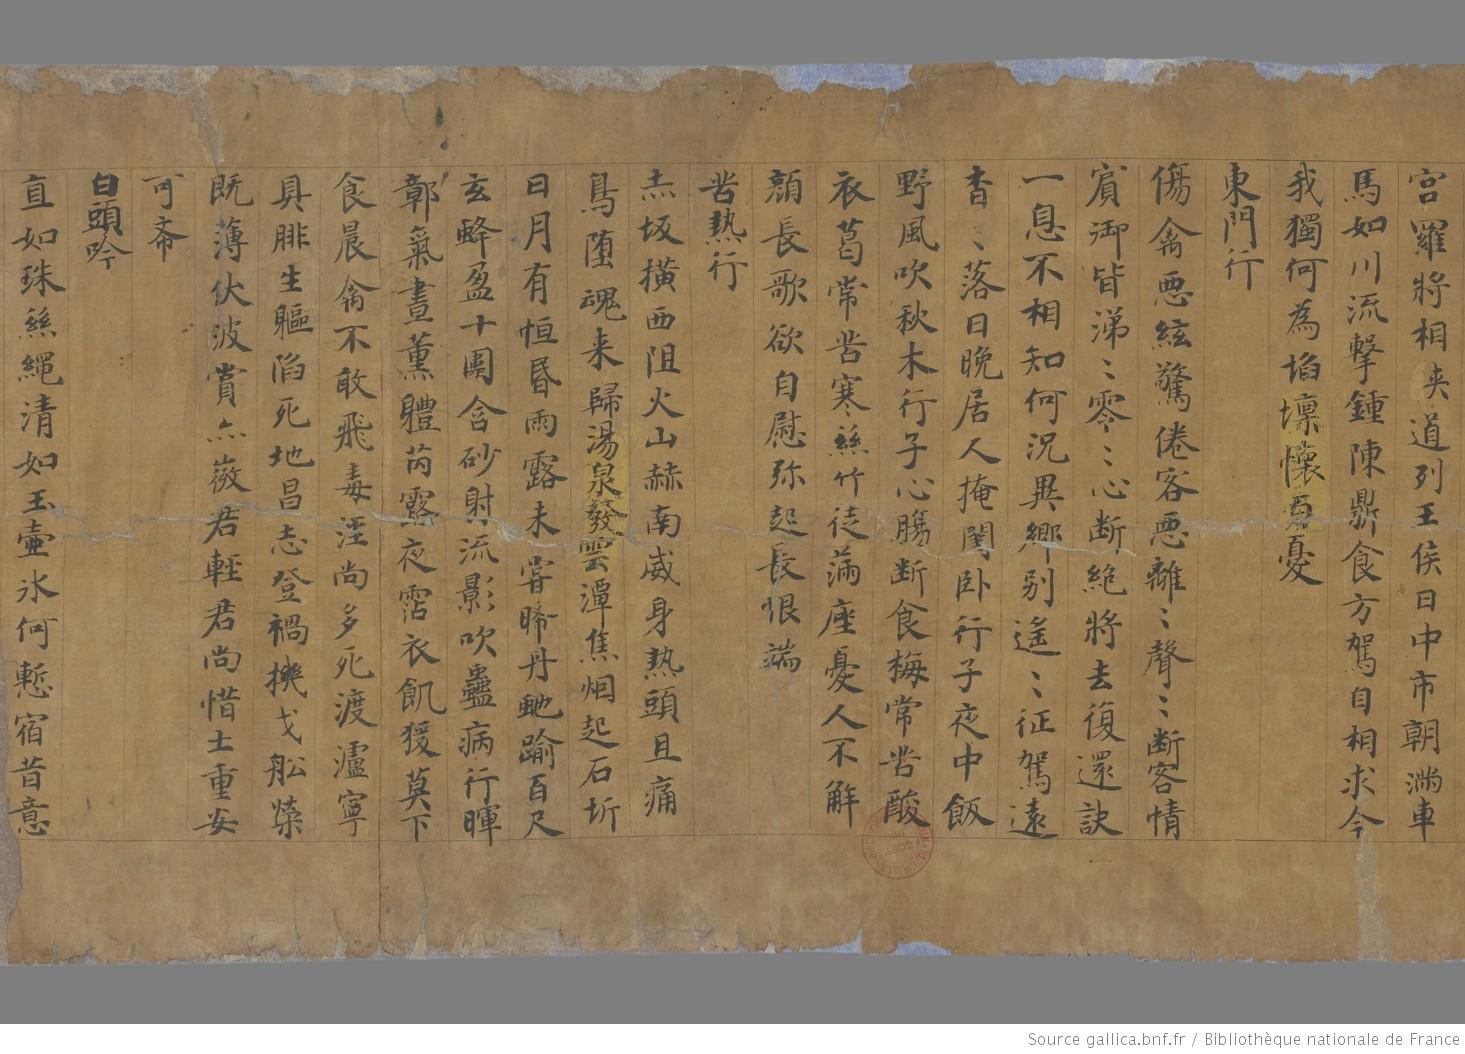 宮羅將相夹道列王侯日中市朝滿車
馬如川流擊鍾陳鼎食方駕自相求今
我獨何為埳壈懷百憂
東門行
傷禽惡絃驚倦客惡離〻聲〻断客情
賔御皆涕〻零〻心断絶將去復還訣
一息不相知何況異鄉别遥〻征駕遠
杳〻落日晚居人掩閨卧行子夜中飯
野風吹秋木行子心膓断食梅常苦酸
衣葛常苦寒絲竹徒滿座憂人不解
顔長歌欲自慰弥起長恨端
苦熱行
赤坂横西阻火山赫南威身熱頭且痛
鳥墮魂来歸湯泉發雲潭焦烟起石圻
日月有恒昏雨露未甞晞丹虵踰百尺
玄蜂盈十圍含砂射流影吹蠱病行暉
鄣氣晝薰體䓑露夜霑衣飢猨莫下
食晨禽不敢飛毒淫尚多死渡瀘寧
具腓生軀陷死地昌志登禍機戈舩榮
既薄伏波賞亦微君輕君尚惜士重安
可希
白頭吟
直如珠絲繩清如玉壷氷何慙宿昔意
Source gallica.bnf.fr / Bibliothèque nationale de France